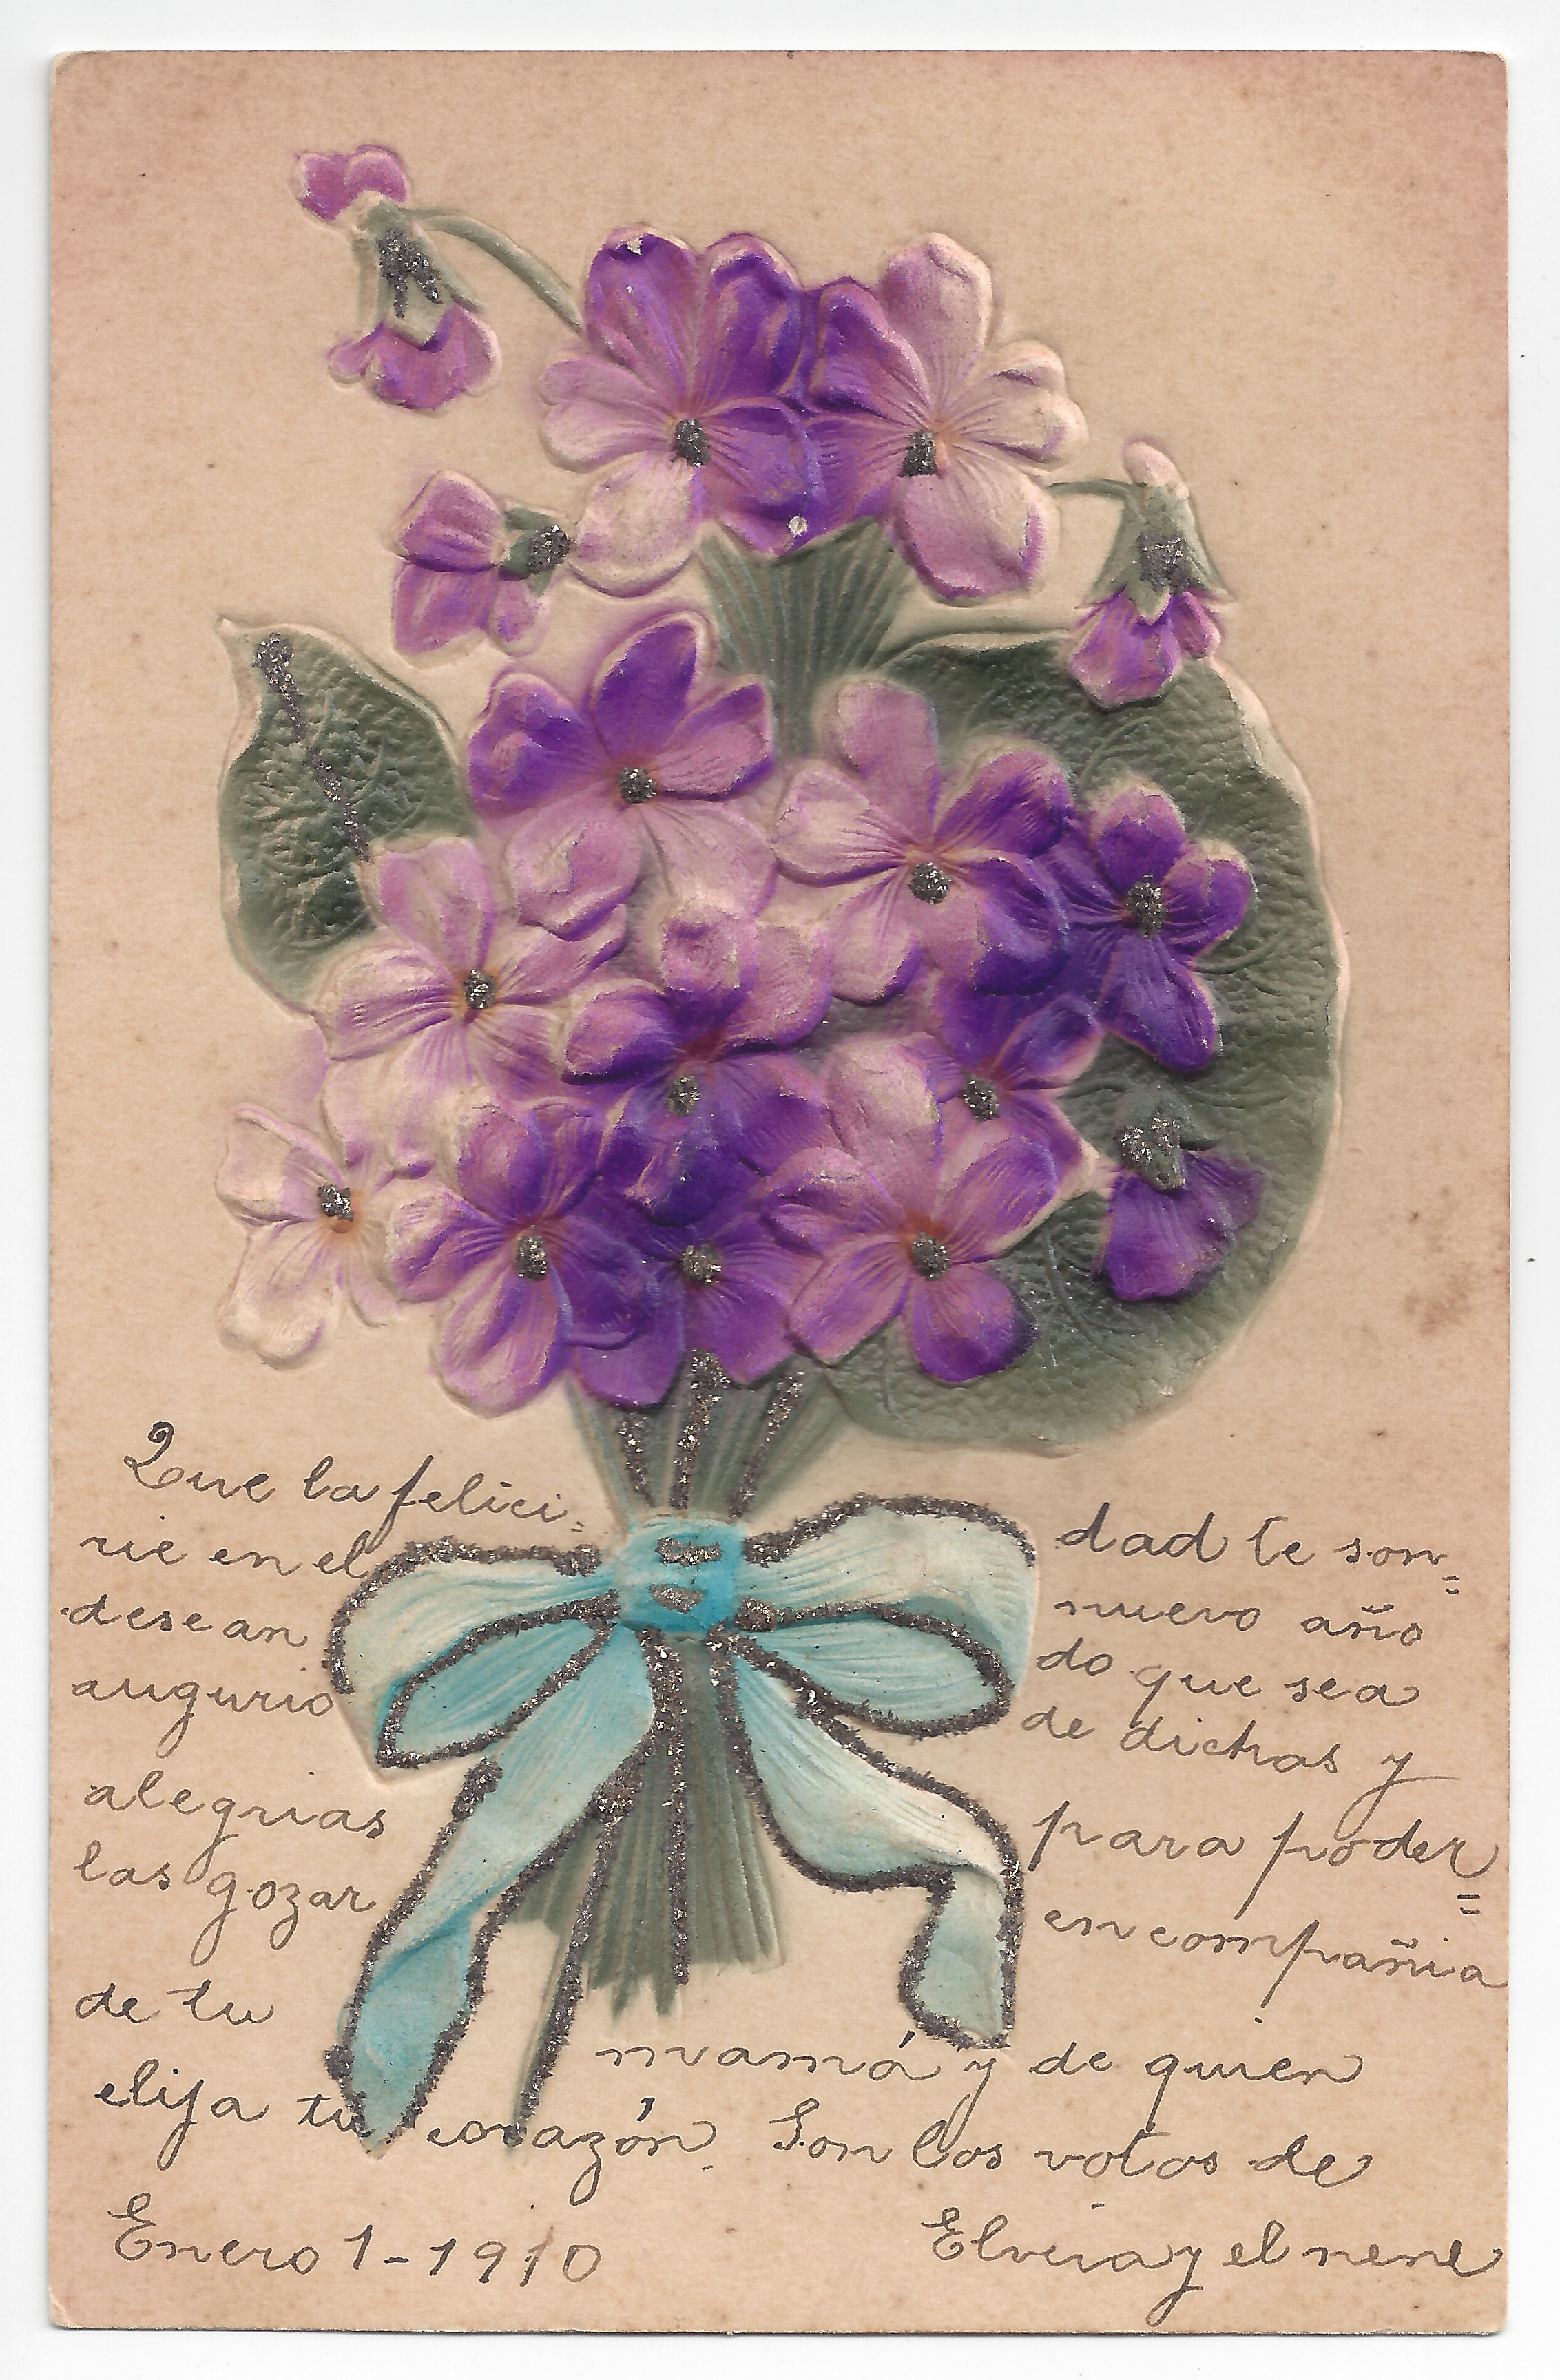 Que la felici= dad te son=
rie en el nuevo año
desean do que sea
augurio de dichas y
alegrias para poder=
las gozar en compañia
de tu mamá y de quien
elija tu corazón. Son los votos de
Enero 1-1910 Elvira y el nene